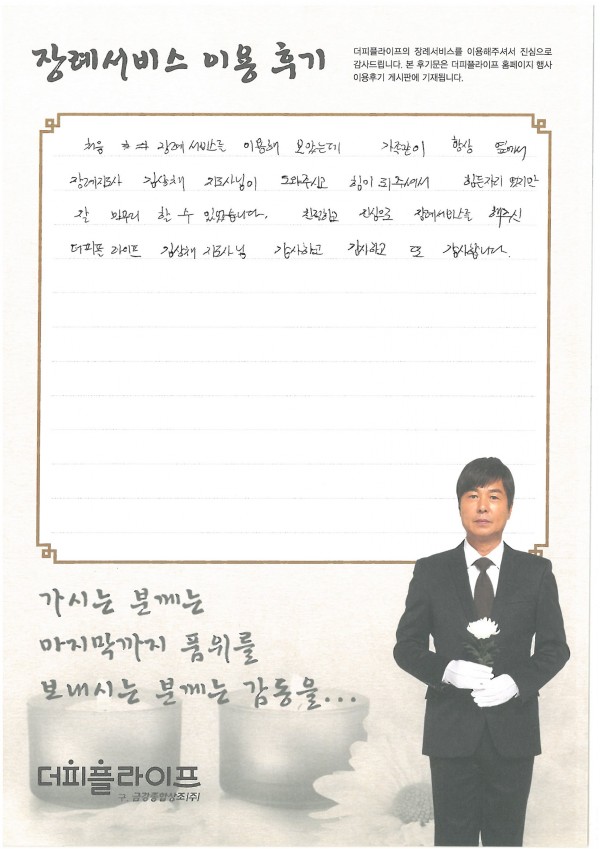 장례서비스 이용 후기
더피플라이프의 장례서비스를 이용해주셔서 진심으로
감사드립니다. 본 후기문은 더피플라이프 홈페이지 행사
이용후기 게시판에 기재됩니다.
처음 장례서비스를 이용해 보았는데 가족같이 항상 옆에서
장례지도사 김상채 지도사님이 도와주시고 힘이 되주셔서 힘든자리 였지만
잘 마무리 할 수 있었습니다. 친절하고 진심으로 장례서비스를 해주신
더피플 라이프 김상채 지도사님 감사하고 감사하고 또 감사합니다.
가시는 분께는
마지막까지 품위를
보내시는 분께는 감동을...
더피플라이프
구. 금강종합상조(주)